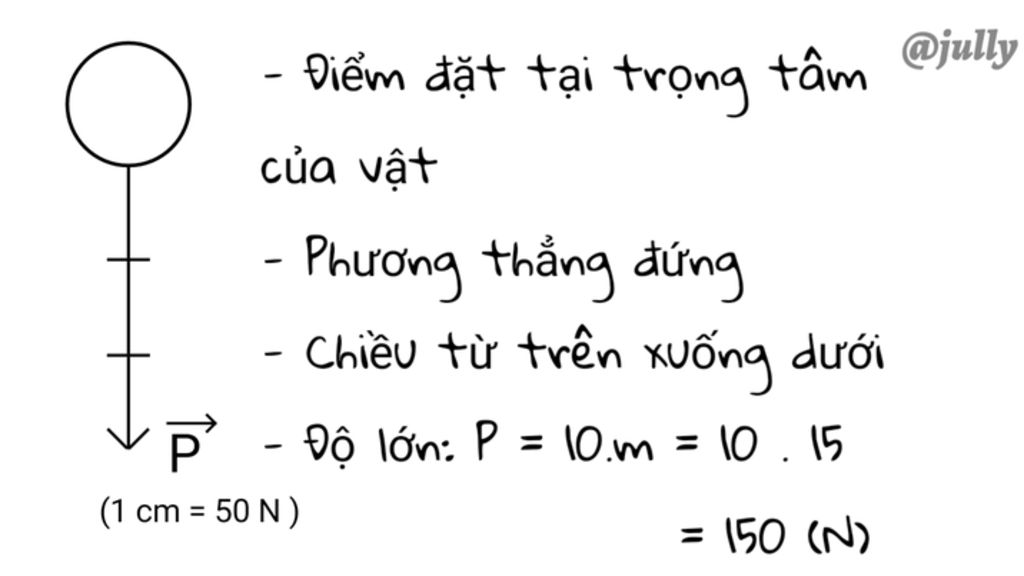 @jully
- Điểm đặt tại trọng tâm
của vật
- Phương thẳng đứng
- Chiều từ trên xuống dưới
- Độ lớn: P = 10.m = 10 . 15
= 150 (N)
P
(1 cm = 50 N )